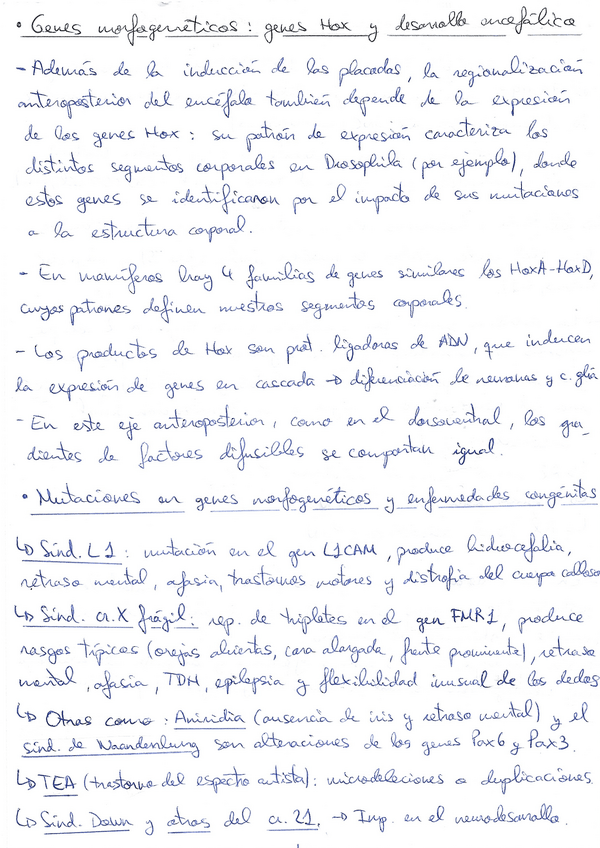 • Genes morfogenéticos: genes Hox y desarrollo encefálico
- Además de la inducción de las placodas, la regionalización
anteroposterior del encéfalo también depende de la expresión
de los genes Hox: su patrón de expresión caracteriza los
distintos segmentos corporales en Drosophila (por ejemplo), donde
estos genes se identificaron por el impacto de sus mutaciones
a la estructura corporal.
- En mamíferos hay 4 familias de genes similares los HoxA-HoxD,
cuyos patrones definen nuestros segmentos corporales.
- Los productos de Hox son prot. ligadoras de ADN, que inducen
la expresión de genes en cascada → diferenciación de neuronas y c. glía
- En este eje anteroposterior, como en el dorsoventral, los gra_
dientes de factores difusibles se comportan igual.
• Mutaciones en genes morfogenéticos y enfermedades congénitas
↳ Sínd. L1: mutación en el gen L1CAM, produce hidrocefalia,
retraso mental, afasia, trastornos motores y distrofia del cuerpo calloso
↳ Sínd. cr. X frágil: rep. de tripletes en el gen FMR1, produce
rasgos típicos (orejas abiertas, cara alargada, frente prominente), retraso
mental, afasia, TDH, epilepsia y flexibilidad inusual de los dedos
↳ Otras como: Aniridia (ausencia de iris y retraso mental) y el
sínd. de Waandenburg son alteraciones de los genes Pax6 y Pax3.
↳ TEA (trastorno del espectro autista): microdeleciones o duplicaciones.
↳ Sínd. Down y otras del cr. 21. → Imp. en el neurodesarrollo.